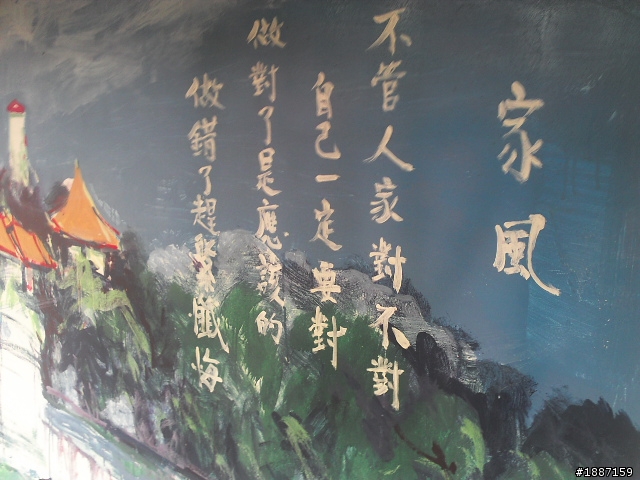 家風
不管人家對不對
自己一定要對
做對了是應該的
做錯了趕緊懺悔
#1887159